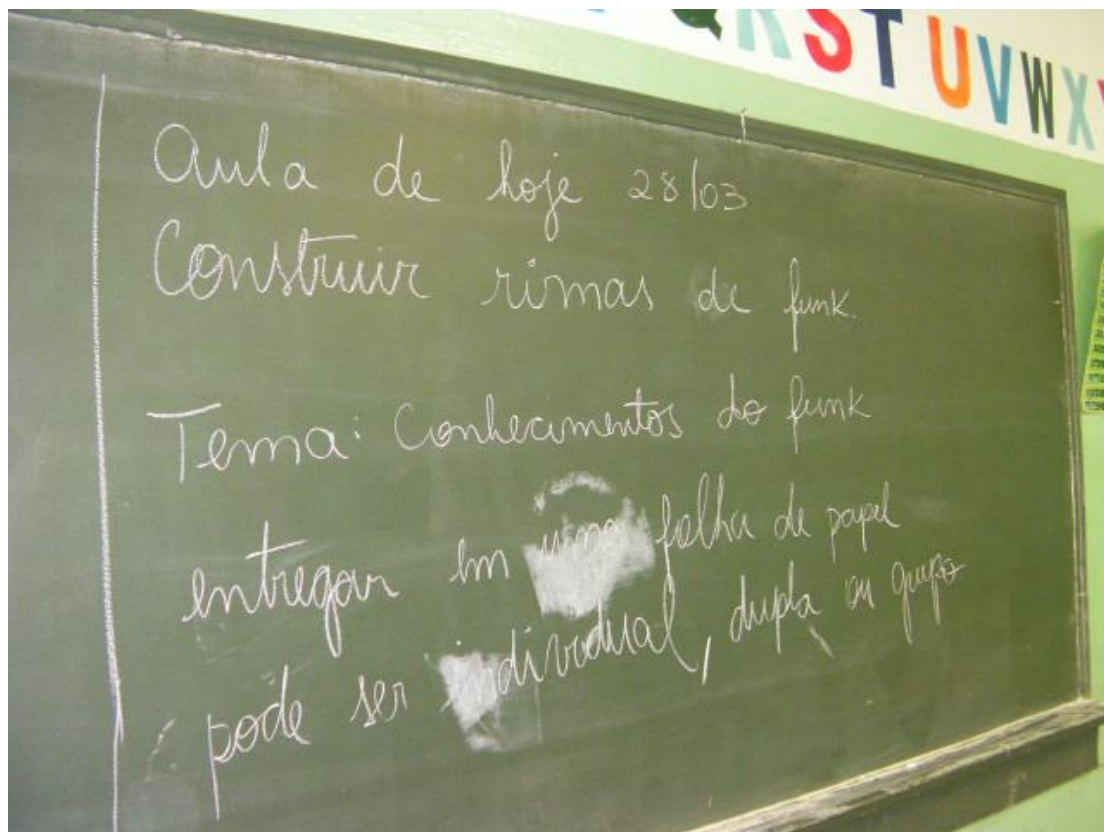 Q R S T U V W X
Aula de hoje 28/03
Construir rimas de funk.
Tema: Conhecimentos do funk
entregar em uma folha de papel
pode ser individual, dupla ou grupo